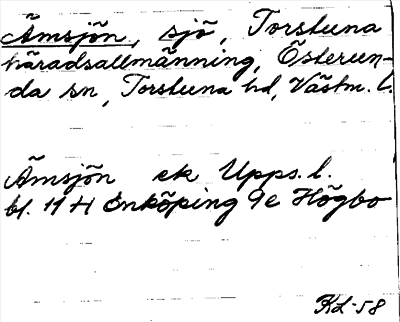 Ämsjön, sjö, Torstuna
häradsallmänning, Österun-
da sn, Torstuna hd, Västm. l.
Ämsjön ek Upps. l.
bl. 11 H Enköping 9e Högbo
KL-58